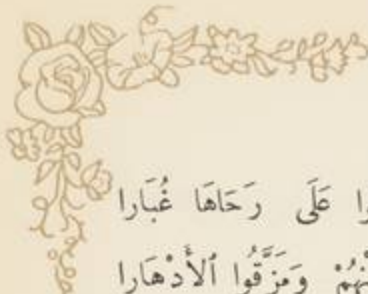 عَلَى رَحَاهَا غُبَارا
وَمَزَّقُوا ٱلْأَدْهَارا